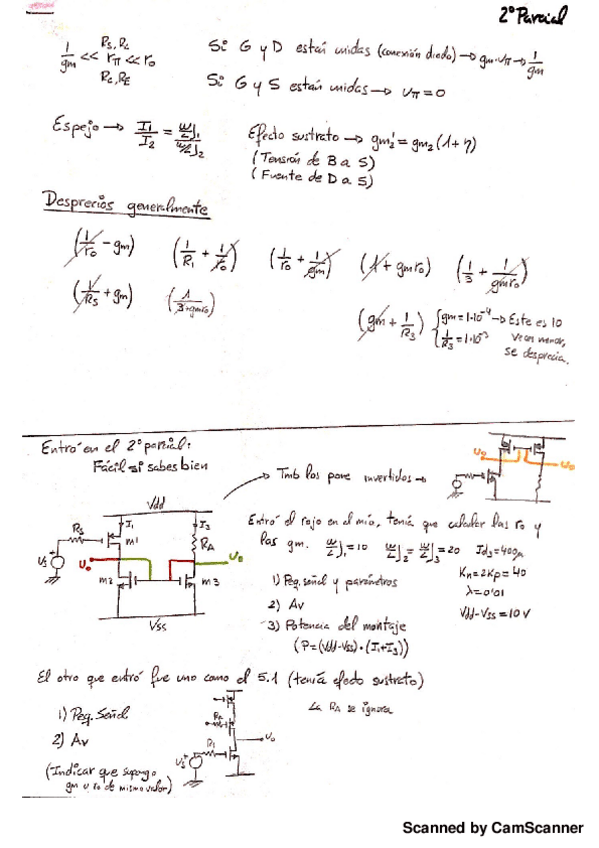 2º Parcial
1/gm << RS, RG rπ RC, RE << ro
Si G y D están unidas (conexión diodo) → gm·vπ → 1/gm
Si G y S están unidas → vπ = 0
Espejo → I1/I2 = W/L)1 / W/L)2
Efecto sustrato → gm2' = gm2 (1+η)
(Tensión de B a S)
(Fuente de D a S)
Desprecios generalmente
(1/ro - gm) (1/R1 + 1/ro) (1/ro + 1/gm) (1 + gmro) (1/3 + 1/gmro)
(1/RS + gm) (1/3+gmro)
(gm + 1/R3) { gm = 1·10⁻⁴ → Este es 10
1/R3 = 1·10⁻³ veces menor,
se desprecia.
Entró en el 2º parcial:
Fácil si sabes bien
Tmb los pone invertidos →
Uo Uo
Vdd
RS I1 I3 RA
M1
Vs Uo Uo
M2 M3
Vss
Entró el rojo en el mío, tenía que calcular las ro y
las gm. W/L)1 = 10 W/L)2 = W/L)3 = 20 Id3 = 400µ
Kn = 2Kp = 40
λ = 0'01
Vdd-Vss = 10V
1) Peq. señal y parámetros
2) Av
3) Potencia del montaje
(P = (Vdd-Vss)·(I1+I3))
El otro que entró fue uno como el 5.1 (tenía efecto sustrato)
La RA se ignora
1) Peq. Señal
2) Av
(Indicar que supongo
gm y ro de mismo valor)
RA
R1
Vs
Vo
Scanned by CamScanner